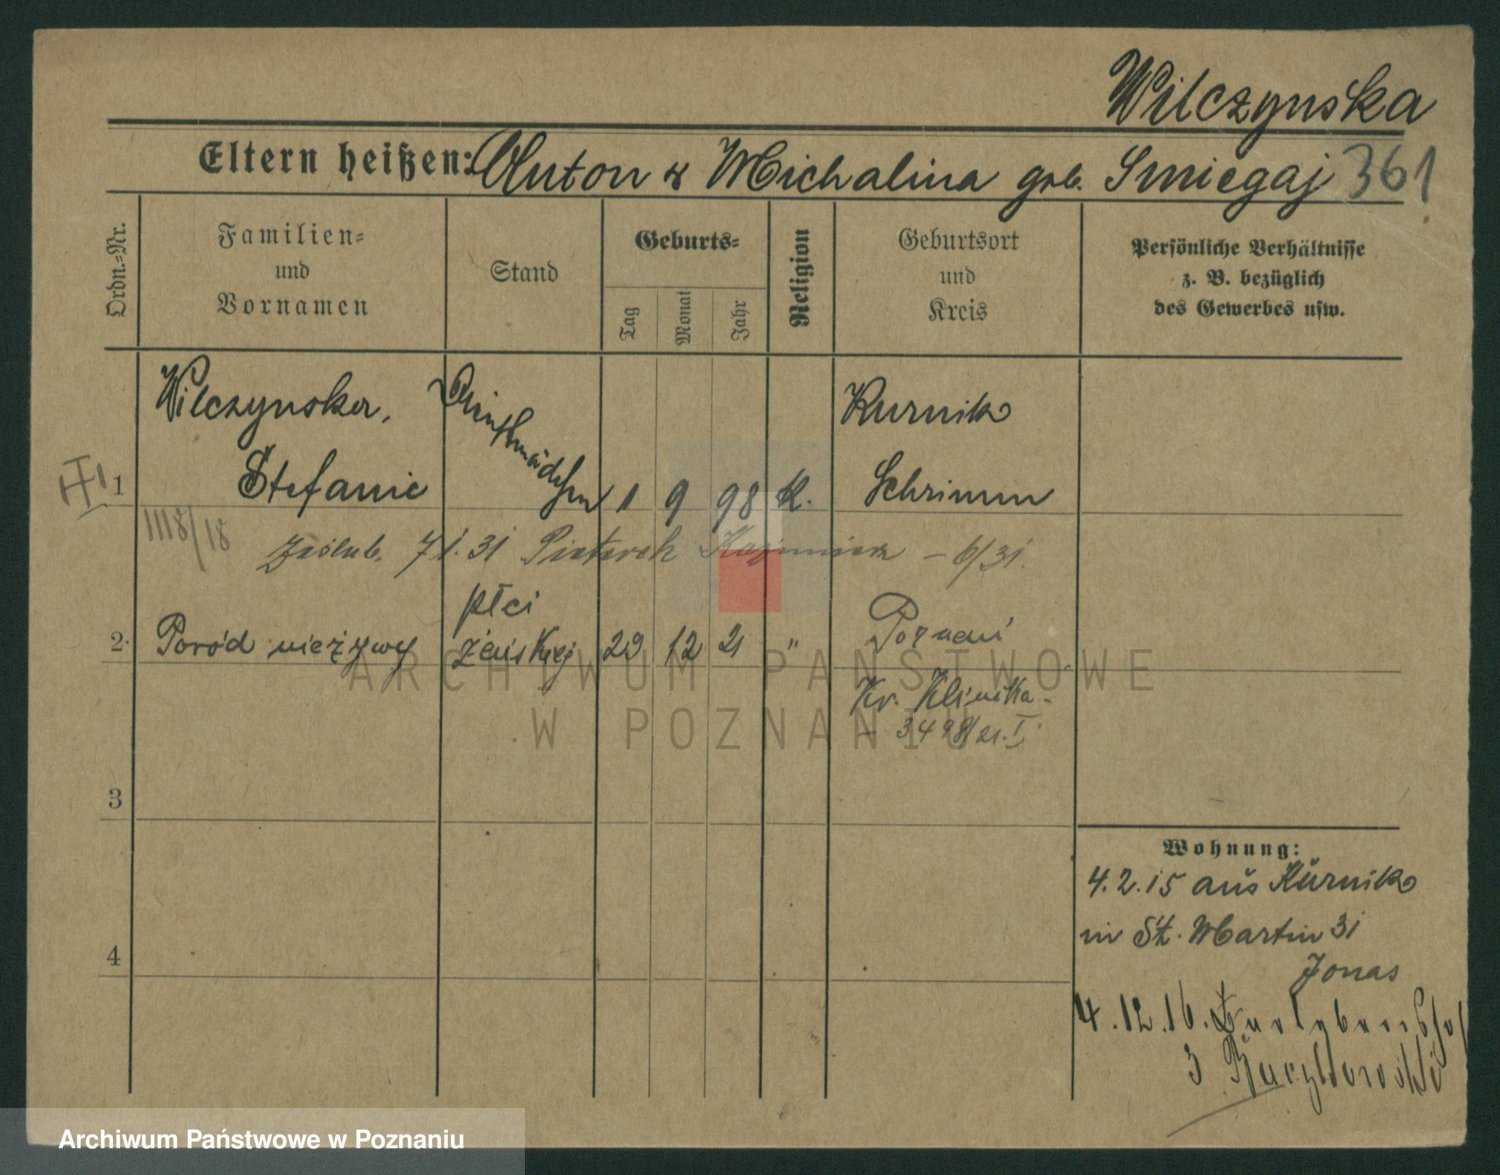 Wilczynska
Eltern heißen: Anton & Michalina geb. Smiegaj 361
Ordn.-Nr.
Familien-
und
Vornamen
Stand
Geburts-
Tag
Monat
Jahr
Religion
Geburtsort
und
Kreis
Persönliche Verhältnisse
z. B. bezüglich
des Gewerbes usw.
Wilczynska, Dienstmädchen Kurnik
1 Stefanie 1 9 98 K. Schrimm
1118/18
zaślub. 7 1. 31 Pietarek Kazimierz – 6/31.
płci
2 Poród nieżywy żeńskiej 29 12 21 " Poznań
Kr. Klinika
3498/21. I.
3
4
Wohnung:
4.2.15 aus Kurnik
in St. Martin 31
Jonas
4.12.16.
3
ARCHIWUM PAŃSTWOWE
W POZNANIU
Archiwum Państwowe w Poznaniu